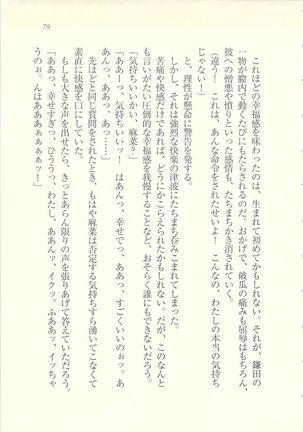 79
これほどの幸福感を味わったのは、生まれて初めてかもしれない。それが、鎌田の
一物が膣内で動くたびにもたらされるのだ。おかげで、破瓜の痛みも屈辱はもちろん、
彼への憎悪や憤りといった感情も、たちまちかき消されていく。
(違う!　これは、あんな命令をされたせいよ!　こんなの、わたしの本当の気持ち
じゃない!)
と、理性が懸命に警告を発する。
しかし、それは強烈な快楽の津波にたちまち呑みこまれてしまった。
苦痛や快感だけであれば、どうにかこらえられたかもしれない。だが、このなんと
も言いがたい圧倒的な幸福感を我慢することなど、おそらく誰にもできないだろう。
「気持ちいいかい、麻菜?」
「ああーっ、気持ちいいッ!　はあんっ、幸せでっ、ああっ、すごくいいのぉッ。あ
あんっ、ああっ、あっ……」
先ほどと同じ質問をされたとき、もはや麻菜は否定する気持ちすら湧いてこなくて
素直に快感を口にしていた。
もしも大きな声を出せたら、きっとあらん限りの声を張りあげて答えていただろう。
「ああっ、幸せすぎっ、ひううっ、わたし、ああんッ、イクッ。ふああッ、イッちゃ
うのぉっ。んはああああぁぁぁぁッ!」